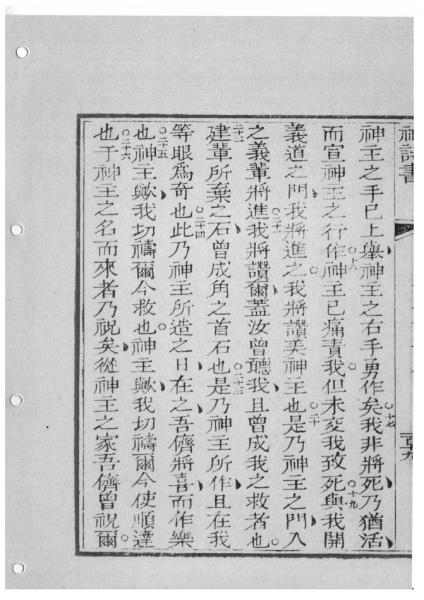 神詩書
神主之手已上舉神主之右手勇作矣我非將死乃猶活
而宣神主之行作神主已痛責我但未交我致死與我開
義道之門我將進之我將讚美神主也是乃神主之門入
之義輩將進我將讚爾蓋汝曾聽我且曾成我之救者也
建輩所棄之石曾成角之首石也是乃神主所作且在我
等眼爲奇也此乃神主所造之日在之吾儕將喜而作樂
也神主歟我切禱爾今救也神主歟我切禱爾今使順達
也于神主之名而來者乃祝矣從神主之家吾儕曾祝爾